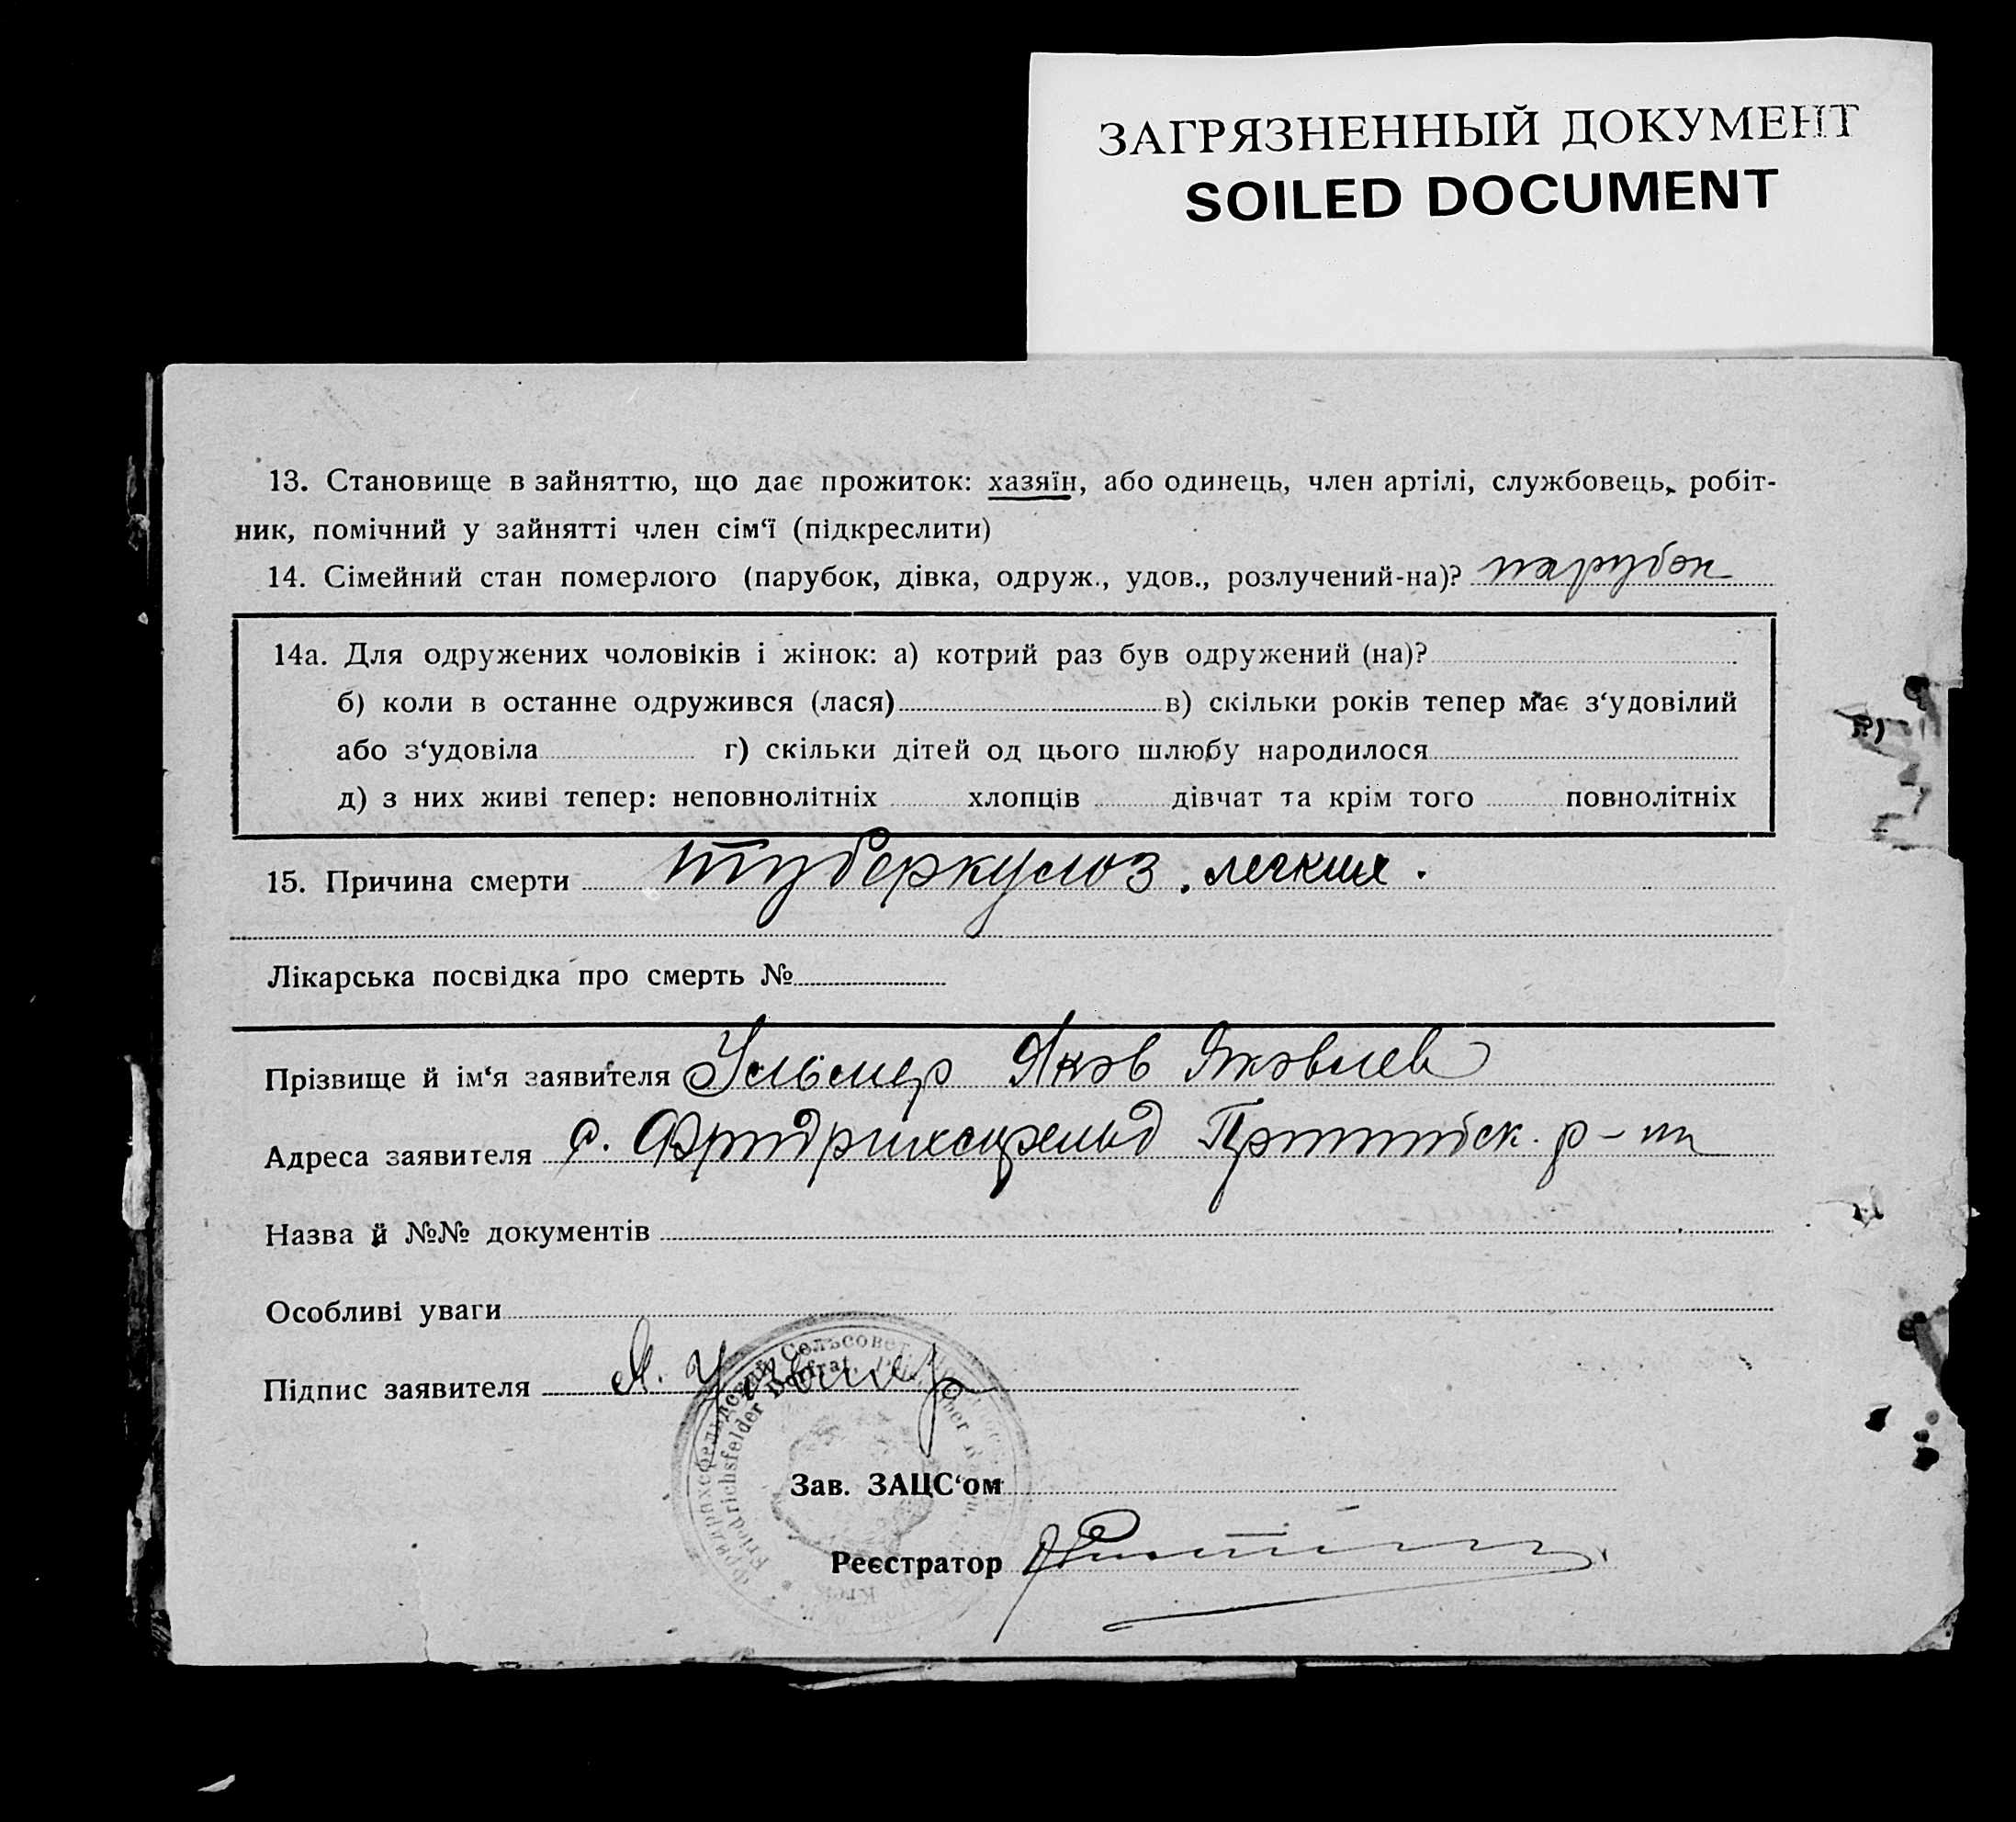 ЗАГРЯЗНЕННЫЙ ДОКУМЕНТ
SOILED DOCUMENT
13. Становище в зайняттю, що дає прожиток: хазяїн, або одинець, член артілі, службовець, робіт-
ник, помічний у зайнятті член сім‘ї (підкреслити)
14. Сімейний стан померлого (парубок, дівка, одруж., удов., розлучений-на)? парубок
14а. Для одружених чоловіків і жінок: а) котрий раз був одружений (на)?
б) коли в останне одружився (лася) в) скільки років тепер має з‘удовілий
або з‘удовіла г) скільки дітей од цього шлюбу народилося
д) з них живі тепер: неповнолітніх хлопців дівчат та крім того повнолітніх
15. Причина смерти туберкулоз. легких.
Лікарська посвідка про смерть №
Прізвище й ім‘я заявителя Ульмер Яков Яковлев
Адреса заявителя с. Фридрихсфельд р-на
Назва й №№ документів
Особливі уваги
Підпис заявителя Я. Ульмер
Фридрихсфельдский Сельсовет
Friedrichsfelder Dorfrat
Зав. ЗАЦС‘ом
Реєстратор